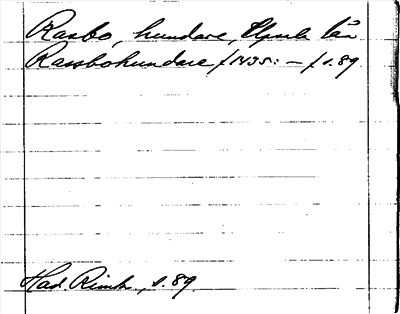 Rasbo, hundare, Upsala län
Rassbohundare /1435: – / s. 89
Had. Rimkr., s. 89.